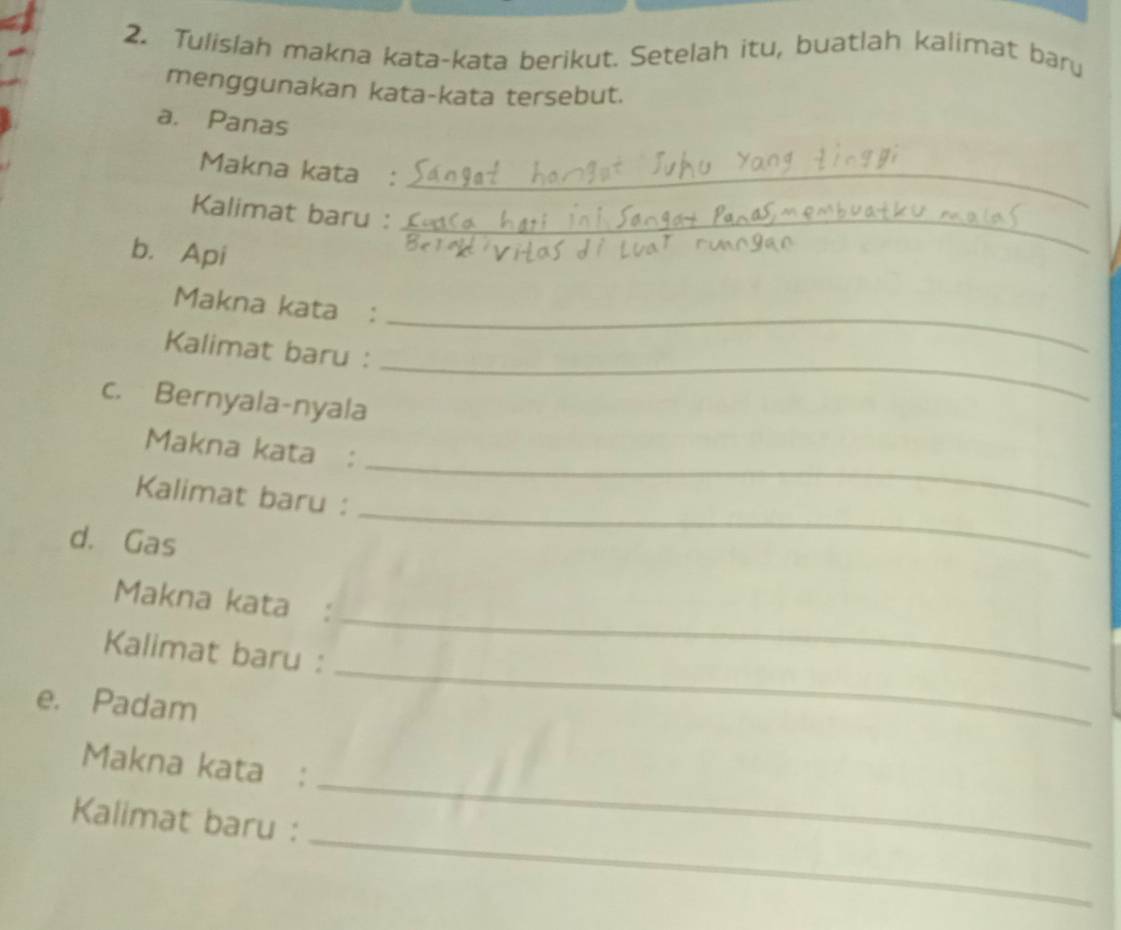 2. Tulislah makna kata-kata berikut. Setelah itu, buatlah kalimat baru
menggunakan kata-kata tersebut.
a. Panas
Makna kata : Sangat hangat Suhu Yang tinggi
Kalimat baru : cuaca hari ini Sangat Panas, membuatku malas
Beraktivitas di luar ruangan
b. Api
Makna kata :
Kalimat baru :
c. Bernyala-nyala
Makna kata :
Kalimat baru :
d. Gas
Makna kata :
Kalimat baru :
e. Padam
Makna kata :
Kalimat baru :